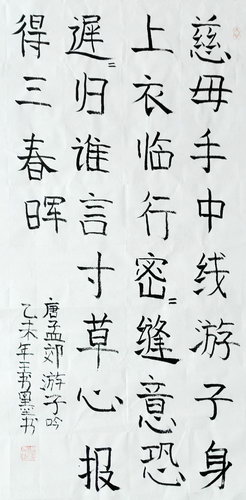 慈母手中线游子身
上衣临行密〻缝意恐
遲〻归谁言寸草心报
得三春晖
唐孟郊游子吟
乙未年王书墨书